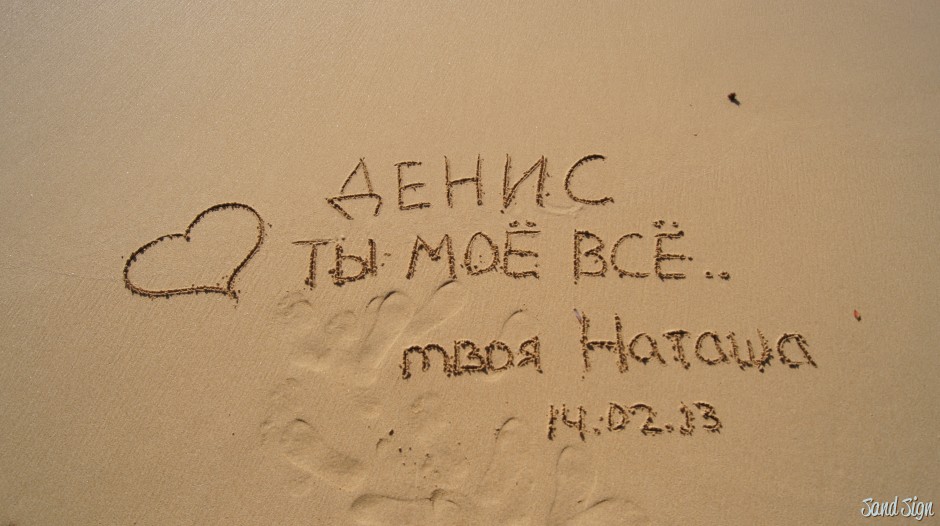 ДЕНИС
ТЫ МОЁ ВСЁ..
твоя Наташа
14.02.13
Sand Sign